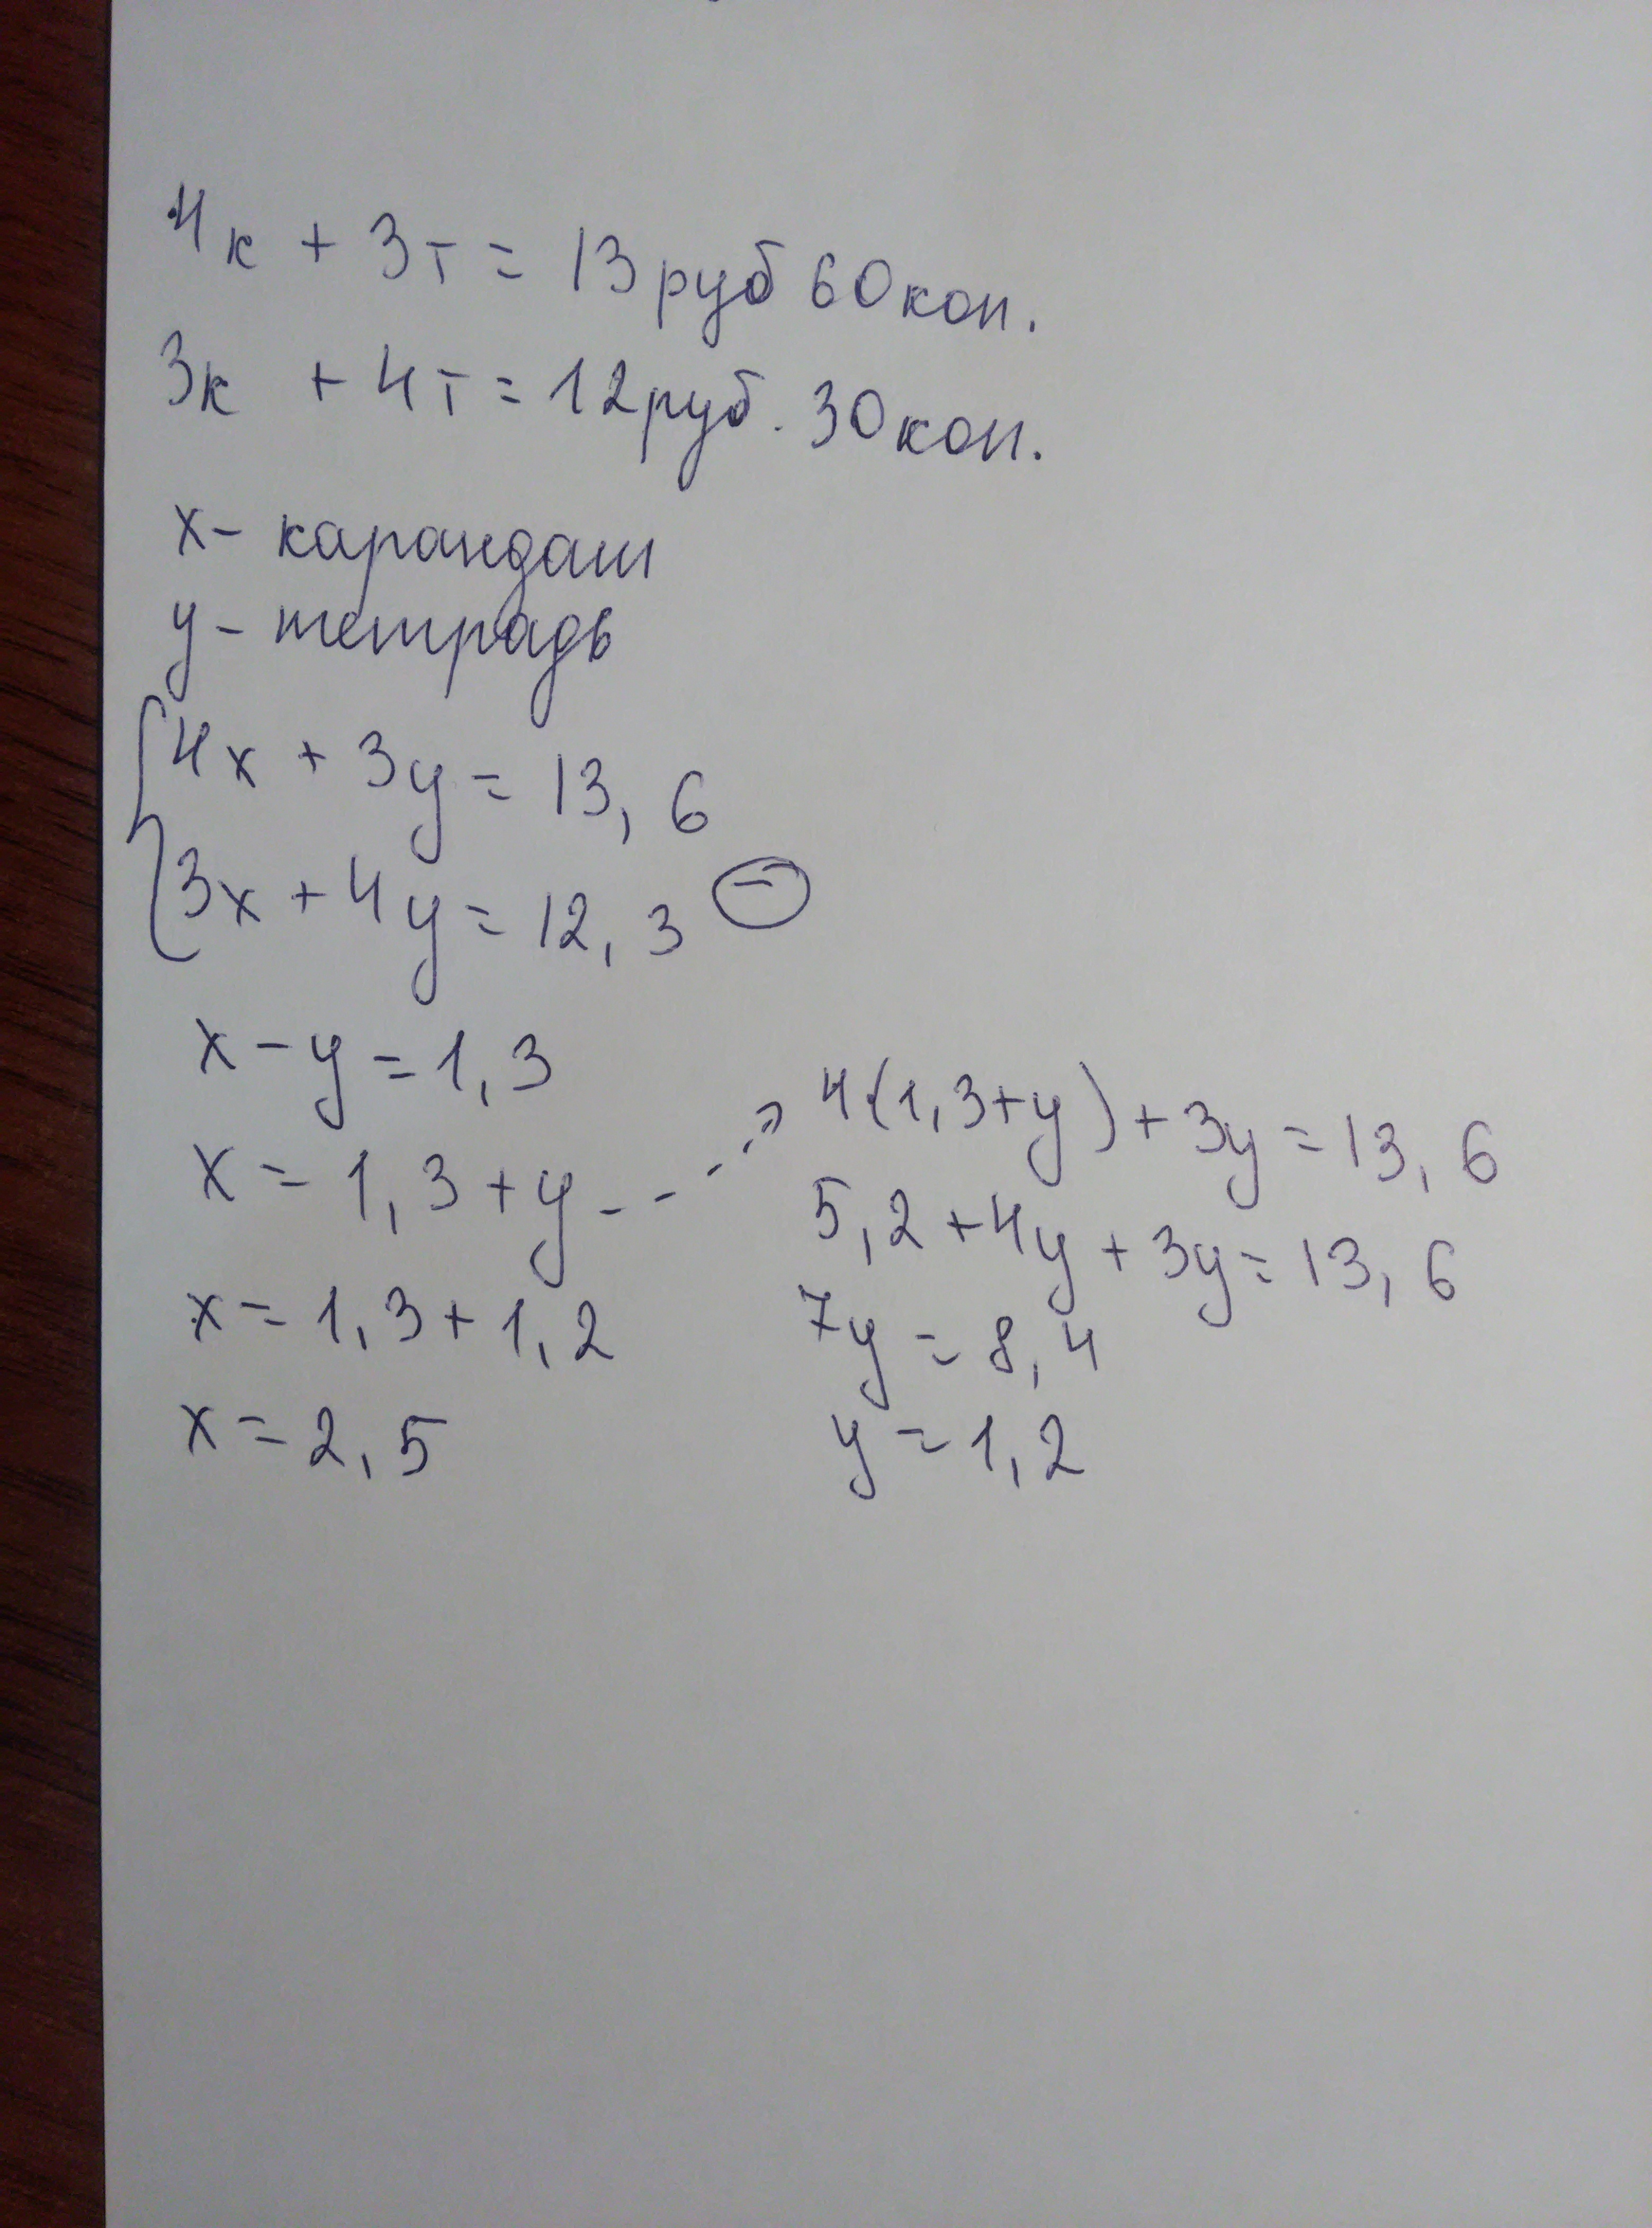 4к + 3т = 13руб 60коп.
3к + 4т = 12руб. 30коп.
x- карандаш
y- тетрадь
4x + 3y = 13,6
3x + 4y = 12,3 -
x - y = 1,3
x = 1,3 + y
x = 1,3 + 1,2
x = 2,5
4·(1,3+y) + 3y = 13,6
5,2 + 4y + 3y = 13,6
7y = 8,4
y = 1,2